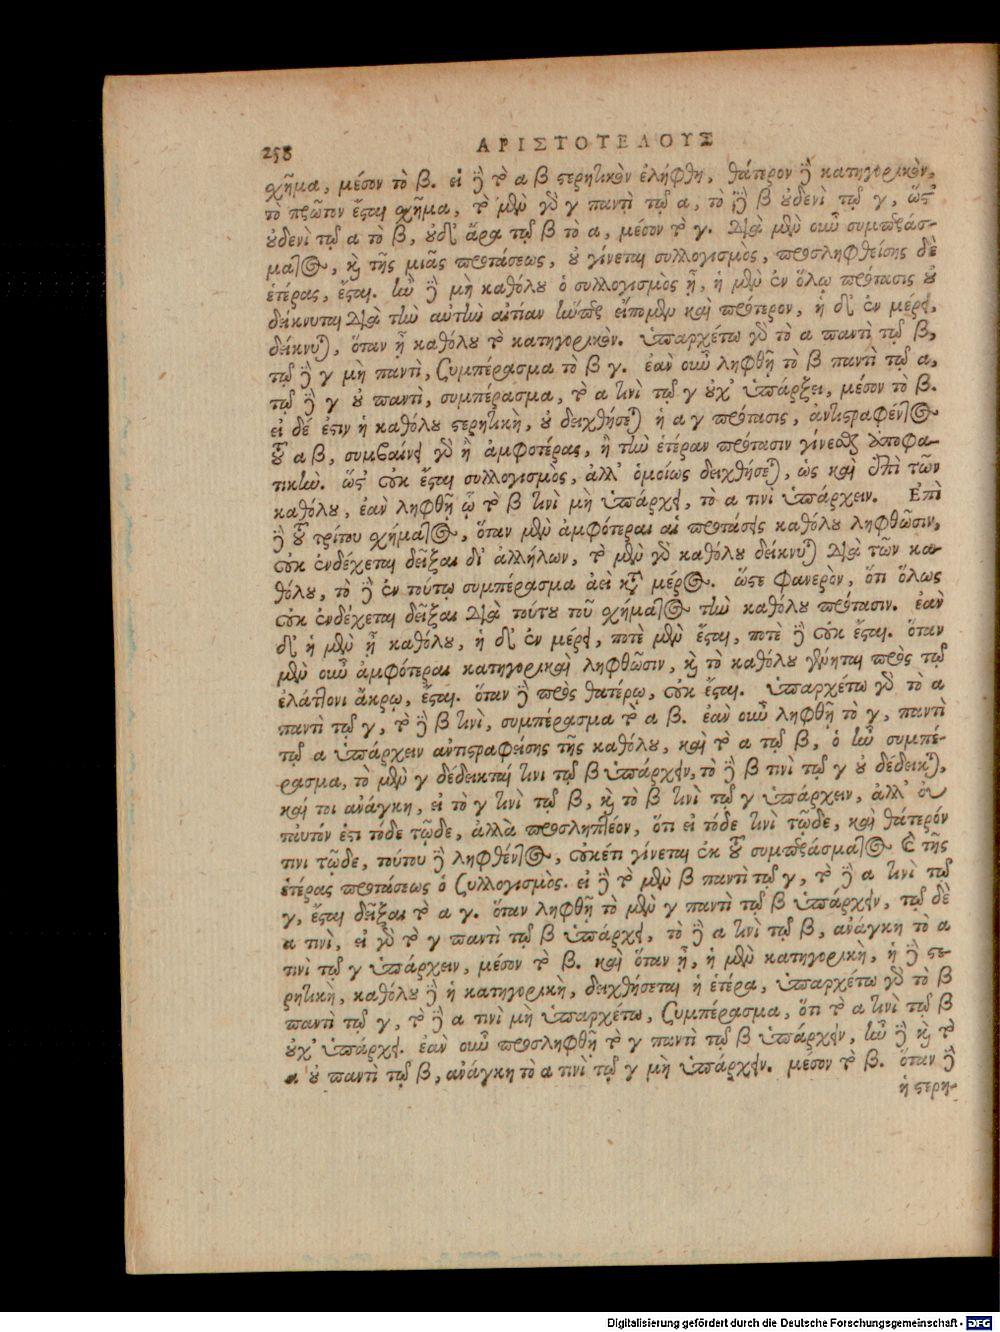 258
ΑΡΙΣΤΟΤΕΛΟΥΣ
χῆμα, μέσον τὸ β. εἰ δὲ τὸ α β στερητικὸν ἐλήφθη, θάτερον δὲ κατηγορικὸν,
τὸ πρῶτον ἔσται χῆμα, τὸ μὲν γὰρ γ παντὶ τῷ α, τὸ δὲ β οὐδενὶ τῷ γ, ὥστ'
οὐδενὶ τῷ α τὸ β, οὐδ' ἄρα τῷ β τὸ α, μέσον τὸ γ. Διὰ μὲν οὖν συμπεράσ-
ματος, καὶ τῆς μιᾶς προτάσεως, οὐ γίνεται συλλογισμὸς, προσληφθείσης δὲ
ἑτέρας, ἔσται. ἰὰν δὲ μὴ καθόλου ὁ συλλογισμὸς ᾖ, ἡ μὲν ἐν ὅλῳ πρότασις οὐ
δείκνυται διὰ τὴν αὐτὴν αἰτίαν ἥνπερ εἴπομεν καὶ πρότερον, ἡ δ' ἐν μέρει,
δείκνυται, ὅταν ᾖ καθόλου τὸ κατηγορικὸν. ὑπαρχέτω γὰρ τὸ α παντὶ τῷ β,
τῷ δὲ γ μὴ παντὶ, συμπέρασμα τὸ β γ. ἐὰν οὖν ληφθῇ τὸ β παντὶ τῷ α,
τῷ δὲ γ οὐ παντὶ, συμπέρασμα, τὸ α τινὶ τῷ γ οὐχ' ὑπάρξει, μέσον τὸ β.
εἰ δέ ἐστιν ἡ καθόλου στερητικὴ, οὐ δειχθήσεται ἡ α γ πρότασις, ἀντιστραφέντος
τοῦ α β, συμβαίνει γὰρ ἢ ἀμφοτέρας, ἢ τὴν ἑτέραν πρότασιν γίνεσθαι ἀποφα-
τικήν. ὥστ' οὐκ ἔσται συλλογισμὸς, ἀλλ' ὁμοίως δειχθήσεται, ὡς καὶ ἐπὶ τῶν
καθόλου, ἐὰν ληφθῇ ᾧ τὸ β τινὶ μὴ ὑπάρχει, τὸ α τινὶ ὑπάρχειν. Ἐπὶ
δὲ τοῦ τρίτου χήματος, ὅταν μὲν ἀμφότεραι αἱ προτάσεις καθόλου ληφθῶσιν,
οὐκ ἐνδέχεται δεῖξαι δι' ἀλλήλων, τὸ μὲν γὰρ καθόλου δείκνυται διὰ τῶν κα-
θόλου, τὸ δὲ ἐν τούτῳ συμπέρασμα ἀεὶ κατὰ μέρος. ὥστε φανερὸν, ὅτι ὅλως
οὐκ ἐνδέχεται δεῖξαι διὰ τούτου τοῦ χήματος τὴν καθόλου πρότασιν. ἐὰν
δ' ἡ μὲν ᾖ καθόλου, ἡ δ' ἐν μέρει, ποτὲ μὲν ἔσται, ποτὲ δὲ οὐκ ἔσται. ὅταν
μὲν οὖν ἀμφότεραι κατηγορικαὶ ληφθῶσιν, καὶ τὸ καθόλου γένηται πρὸς τῷ
ἐλάττονι ἄκρῳ, ἔσται. ὅταν δὲ πρὸς θατέρῳ, οὐκ ἔσται. ὑπαρχέτω γὰρ τὸ α
παντὶ τῷ γ, τὸ δὲ β τινὶ, συμπέρασμα τὸ α β. ἐὰν οὖν ληφθῇ τὸ γ, παντὶ
τῷ α ὑπάρχειν ἀντιστραφείσης τῆς καθόλου, καὶ τὸ α τῷ β, ὁ ἦν συμπέ-
ρασμα, τὸ μὲν γ δέδεικταί τινι τῷ β ὑπάρχειν, τὸ δὲ β τινὶ τῷ γ οὐ δέδεικται,
καί τοι ἀνάγκη, εἰ τὸ γ τινὶ τῷ β, καὶ τὸ β τινὶ τῷ γ ὑπάρχειν, ἀλλ' οὐ
ταὐτόν ἐστι τόδε τῷδε, ἀλλὰ προσληπτέον, ὅτι εἰ τόδε τινὶ τῷδε, καὶ θάτερόν
τινι τῷδε, τούτου δὲ ληφθέντος, οὐκέτι γίνεται ἐκ τοῦ συμπεράσματος καὶ τῆς
ἑτέρας προτάσεως ὁ συλλογισμὸς. εἰ δὲ τὸ μὲν β παντὶ τῷ γ, τὸ δὲ α τινὶ τῷ
γ, ἔσται δεῖξαι τὸ α γ. ὅταν ληφθῇ τὸ μὲν γ παντὶ τῷ β ὑπάρχειν, τῷ δὲ
α τινὶ, εἰ γὰρ τὸ γ παντὶ τῷ β ὑπάρχει, τὸ δὲ α τινὶ τῷ β, ἀνάγκη τὸ α
τινὶ τῷ γ ὑπάρχειν, μέσον τὸ β. καὶ ὅταν ᾖ, ἡ μὲν κατηγορικὴ, ἡ δὲ στε-
ρητικὴ, καθόλου δὲ ἡ κατηγορικὴ, δειχθήσεται ἡ ἑτέρα, ὑπαρχέτω γὰρ τὸ β
παντὶ τῷ γ, τὸ δὲ α τινὶ μὴ ὑπαρχέτω, συμπέρασμα, ὅτι τὸ α τινὶ τῷ β
οὐχ' ὑπάρχει. ἐὰν οὖν προσληφθῇ τὸ γ παντὶ τῷ β ὑπάρχειν, ἦν δὲ καὶ τὸ
α οὐ παντὶ τῷ β, ἀνάγκη τὸ α τινὶ τῷ γ μὴ ὑπάρχειν. μέσον τὸ β. ὅταν δὲ
ἡ στερη-
Digitalisierung gefördert durch die Deutsche Forschungsgemeinschaft - DFG